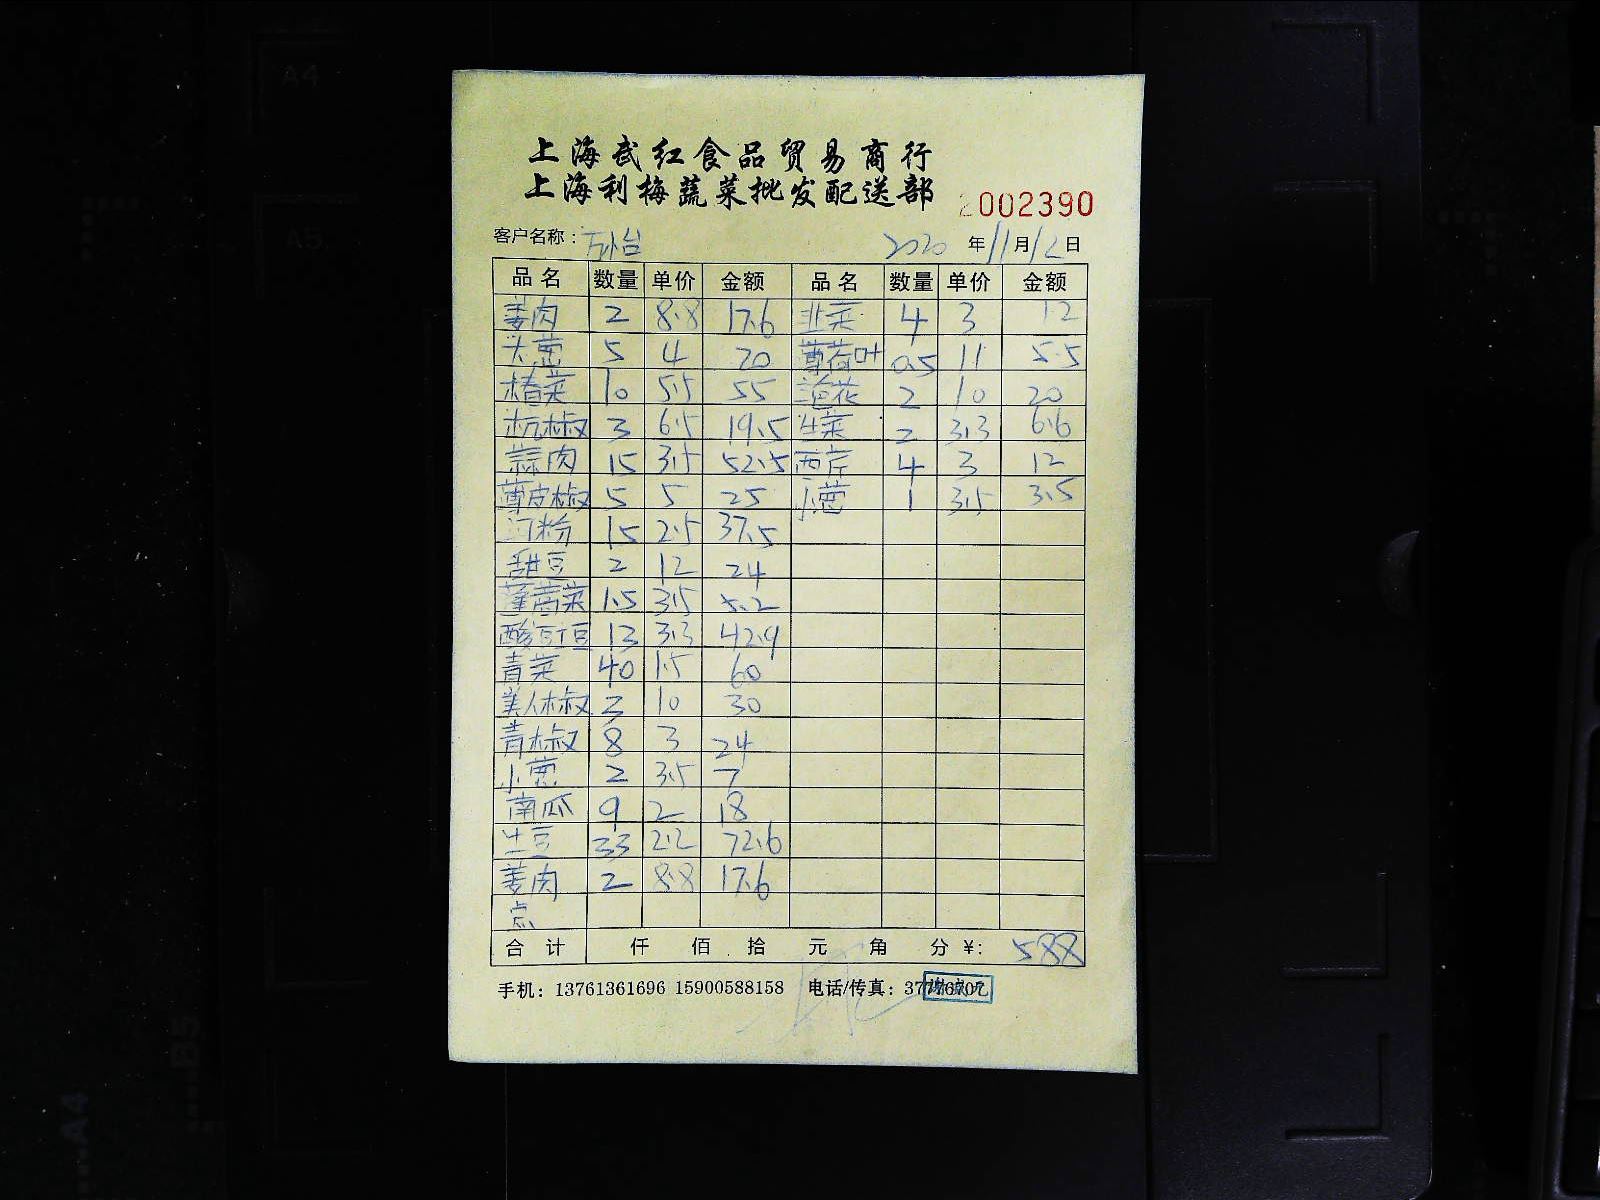 上海武红食品贸易商行
上海利梅蔬菜批发配送部
2002390
客户名称： 2020年11月12日
品名 数量 单价 金额 品名 数量 单价 金额
姜肉 2 8.8 17.6 韭菜 4 3 12
大葱 5 4 20 薄荷叶 0.5 11 5.5
椿菜 10 5.5 55 葱花 2 10 20
杭椒 3 6.5 19.5 生菜 2 3.3 6.6
蒜肉 15 3.5 52.5 西芹 4 3 12
薄皮椒 5 5 25 小葱 1 3.5 3.5
河粉 15 2.5 37.5
甜豆 2 12 24
蓬蒿菜 1.5 3.5 5.2
酸豇豆 13 3.3 42.9
青菜 40 1.5 60
美人椒 3 10 30
青椒 8 3 24
小葱 2 3.5 7
南瓜 9 2 18
土豆 33 2.2 72.6
姜肉 2 8.8 17.6
点
合计 仟 佰 拾 元 角 分 ¥: 588
手机：13761361696 15900588158 电话/传真：
A4
A5
A4
B5